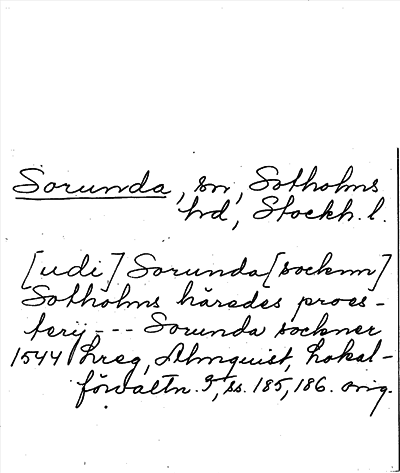 Sorunda, sn, Sotholms
hd, Stockh. l.
[udi] Sorunda [socknn]
Sotholms härades proes-
terij --- Sorunda sockner
1544 Lreg, Almquist, Lokal-
förvaltn. I, ss. 185, 186. orig.